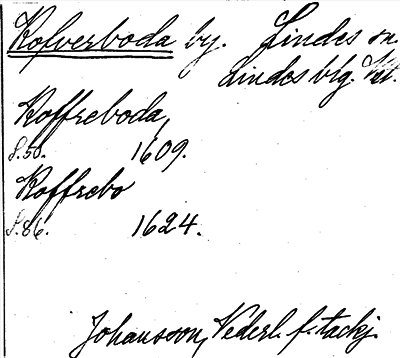 Kofverboda by. Lindes sn.
Lindes blg.
Koffreboda,
S. 50. 1609.
Koffrebo
S. 86. 1624.
Johansson, Vederl. f. tackj.